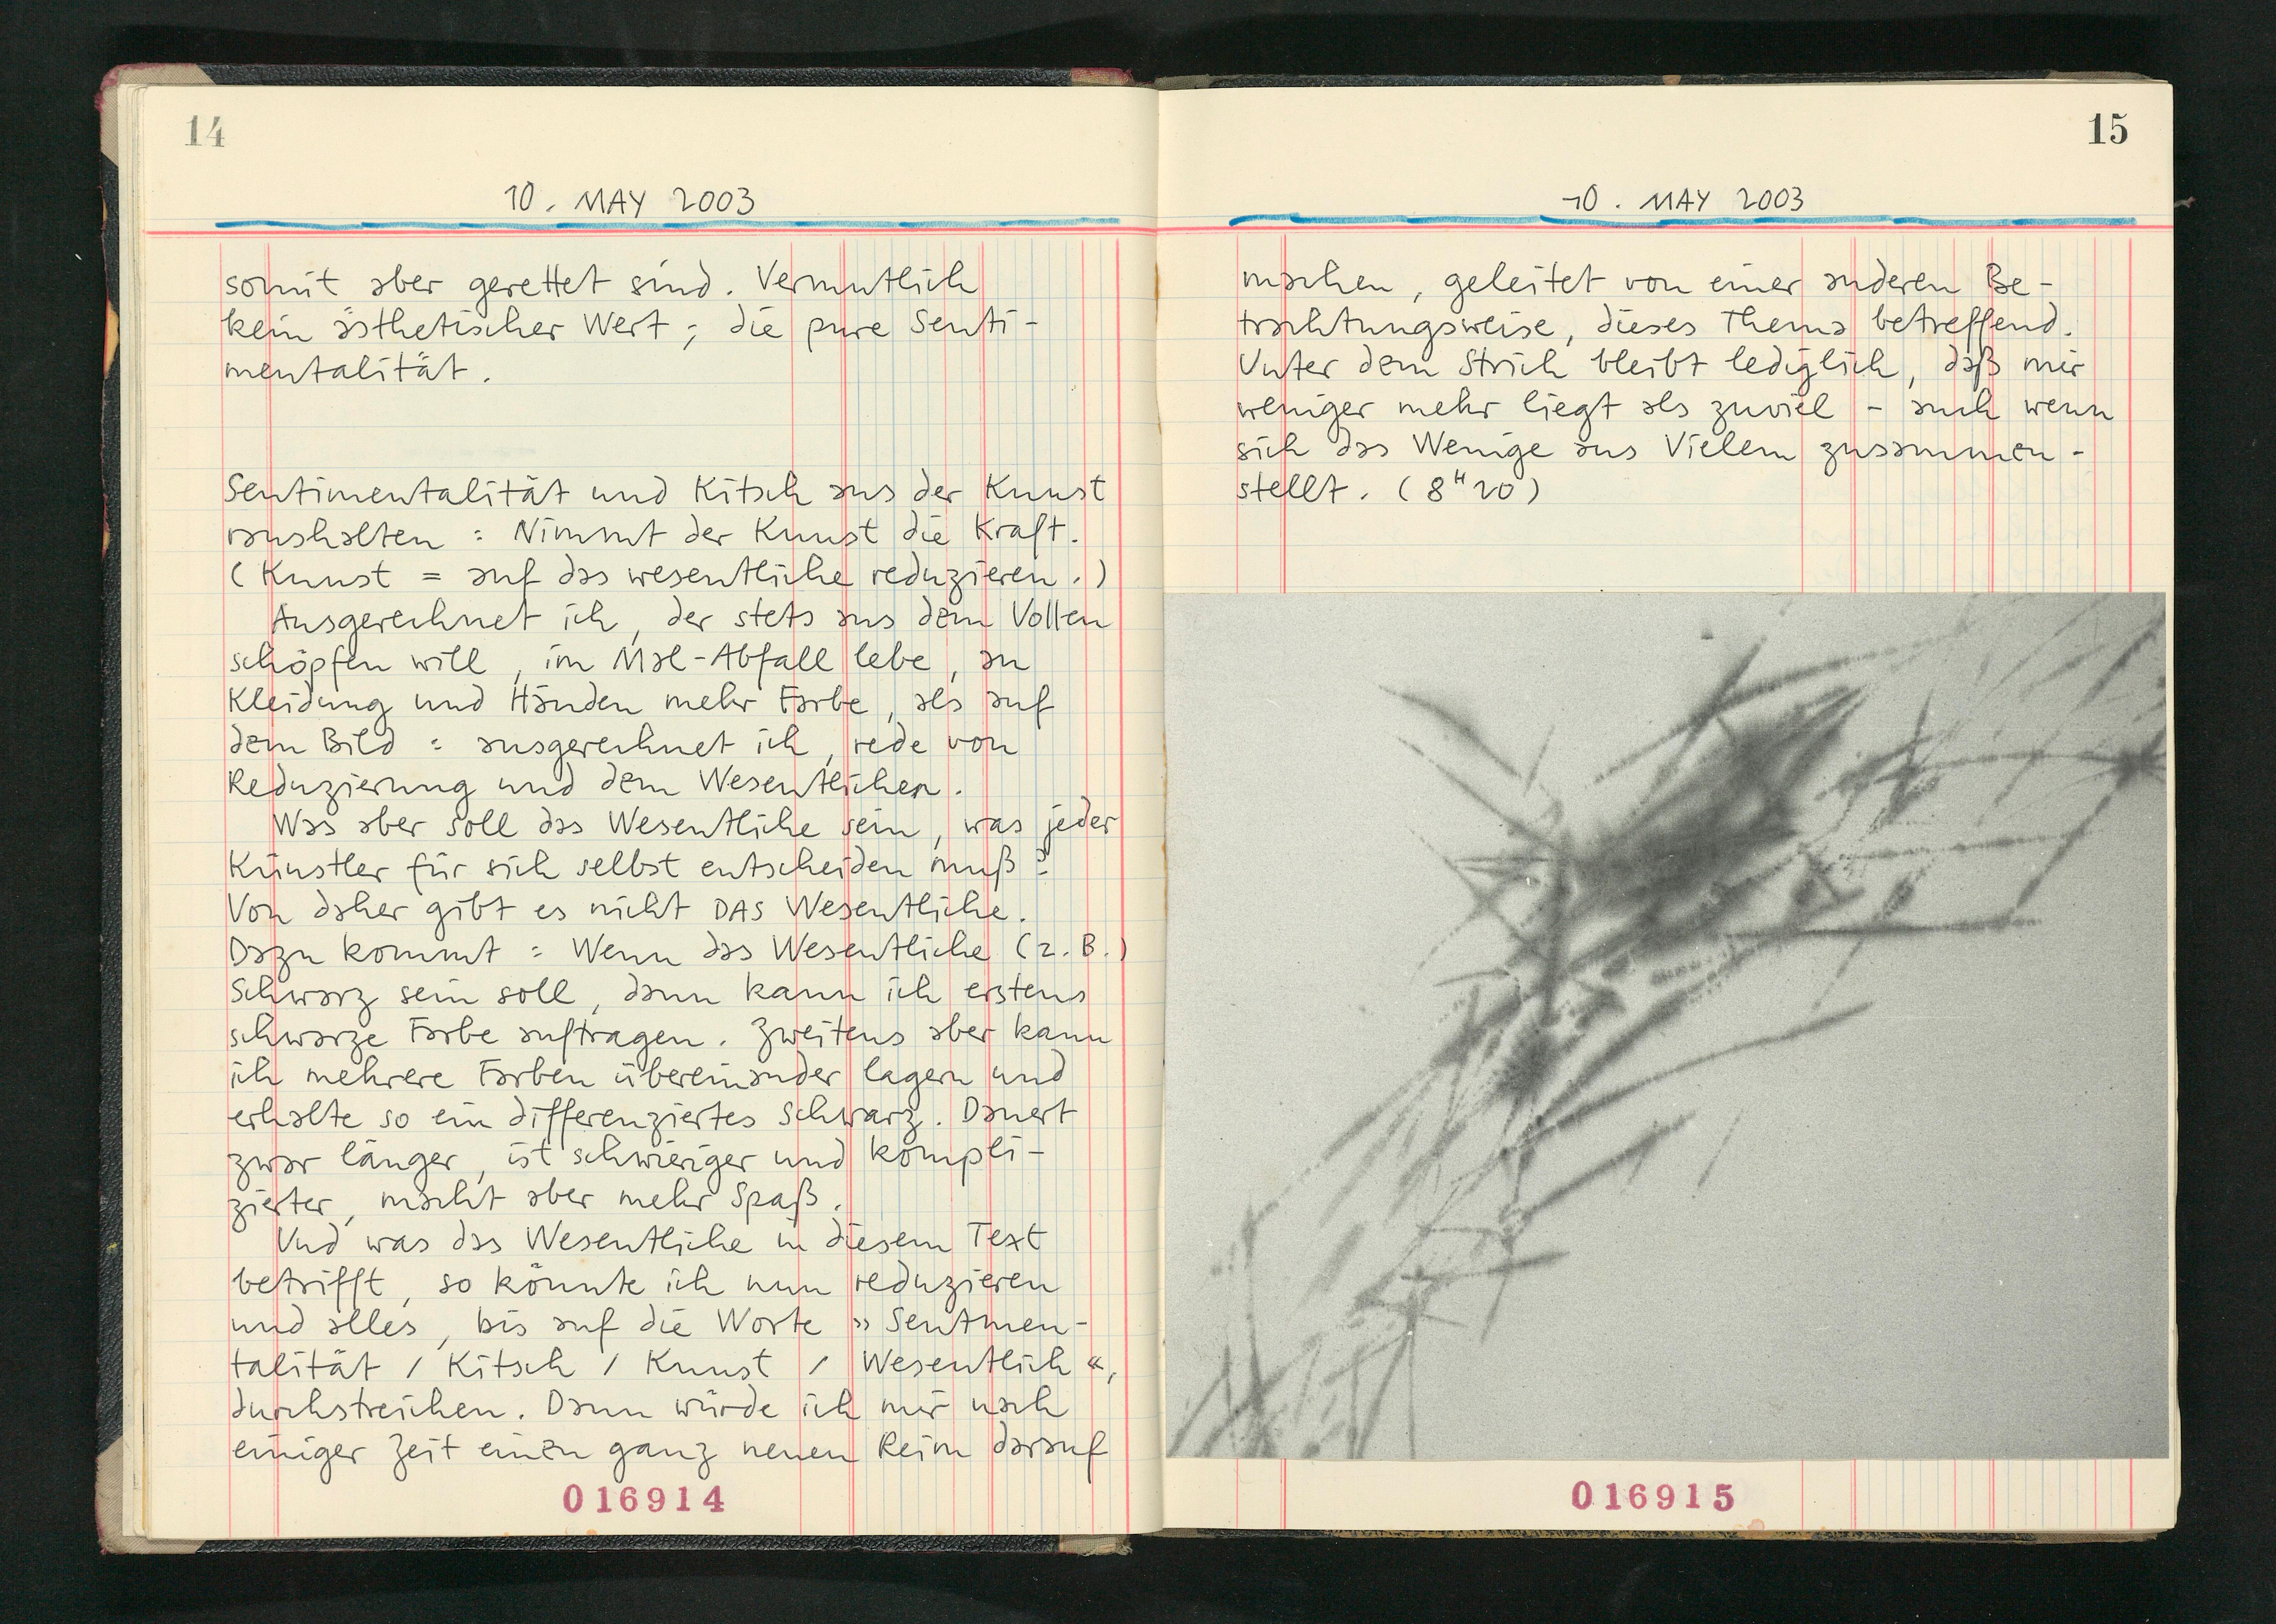 14
10. MAY 2003
somit aber gerettet sind. Vermutlich
kein ästhetischer Wert; die pure Senti-
mentalität.
Sentimentalität und Kitsch aus der Kunst
raushalten : Nimmt der Kunst die Kraft.
(Kunst = auf das wesentliche reduzieren.)
Ausgerechnet ich, der stets aus dem Vollen
schöpfen will, im Mal-Abfall lebe, an
Kleidung und Händen mehr Farbe, als auf
dem Bild : ausgerechnet ich, rede von
Reduzierung und dem Wesentlichen.
Was aber soll das Wesentliche sein, was jeder
Künstler für sich selbst entscheiden muß?
Von daher gibt es nicht DAS Wesentliche.
Dazu kommt : Wenn das Wesentliche (z.B.)
Schwarz sein soll, dann kann ich erstens
schwarze Farbe auftragen. Zweitens aber kann
ich mehrere Farben übereinander lagern und
erhalte so ein differenziertes Schwarz. Dauert
zwar länger, ist schwieriger und kompli-
zierter, macht aber mehr Spaß.
Und was das Wesentliche in diesem Text
betrifft, so könnte ich nun reduzieren
und alles, bis auf die Worte »Sentimen-
talität / Kitsch / Kunst / Wesentlich«,
durchstreichen. Dann würde ich mir nach
einiger Zeit einen ganz neuen Reim darauf
016914
15
10. MAY 2003
machen, geleitet von einer anderen Be-
trachtungsweise, dieses Thema betreffend.
Unter dem Strich bleibt lediglich, daß mir
weniger mehr liegt als zuviel – auch wenn
sich das Wenige aus Vielem zusammen-
stellt. (8H20)
016915